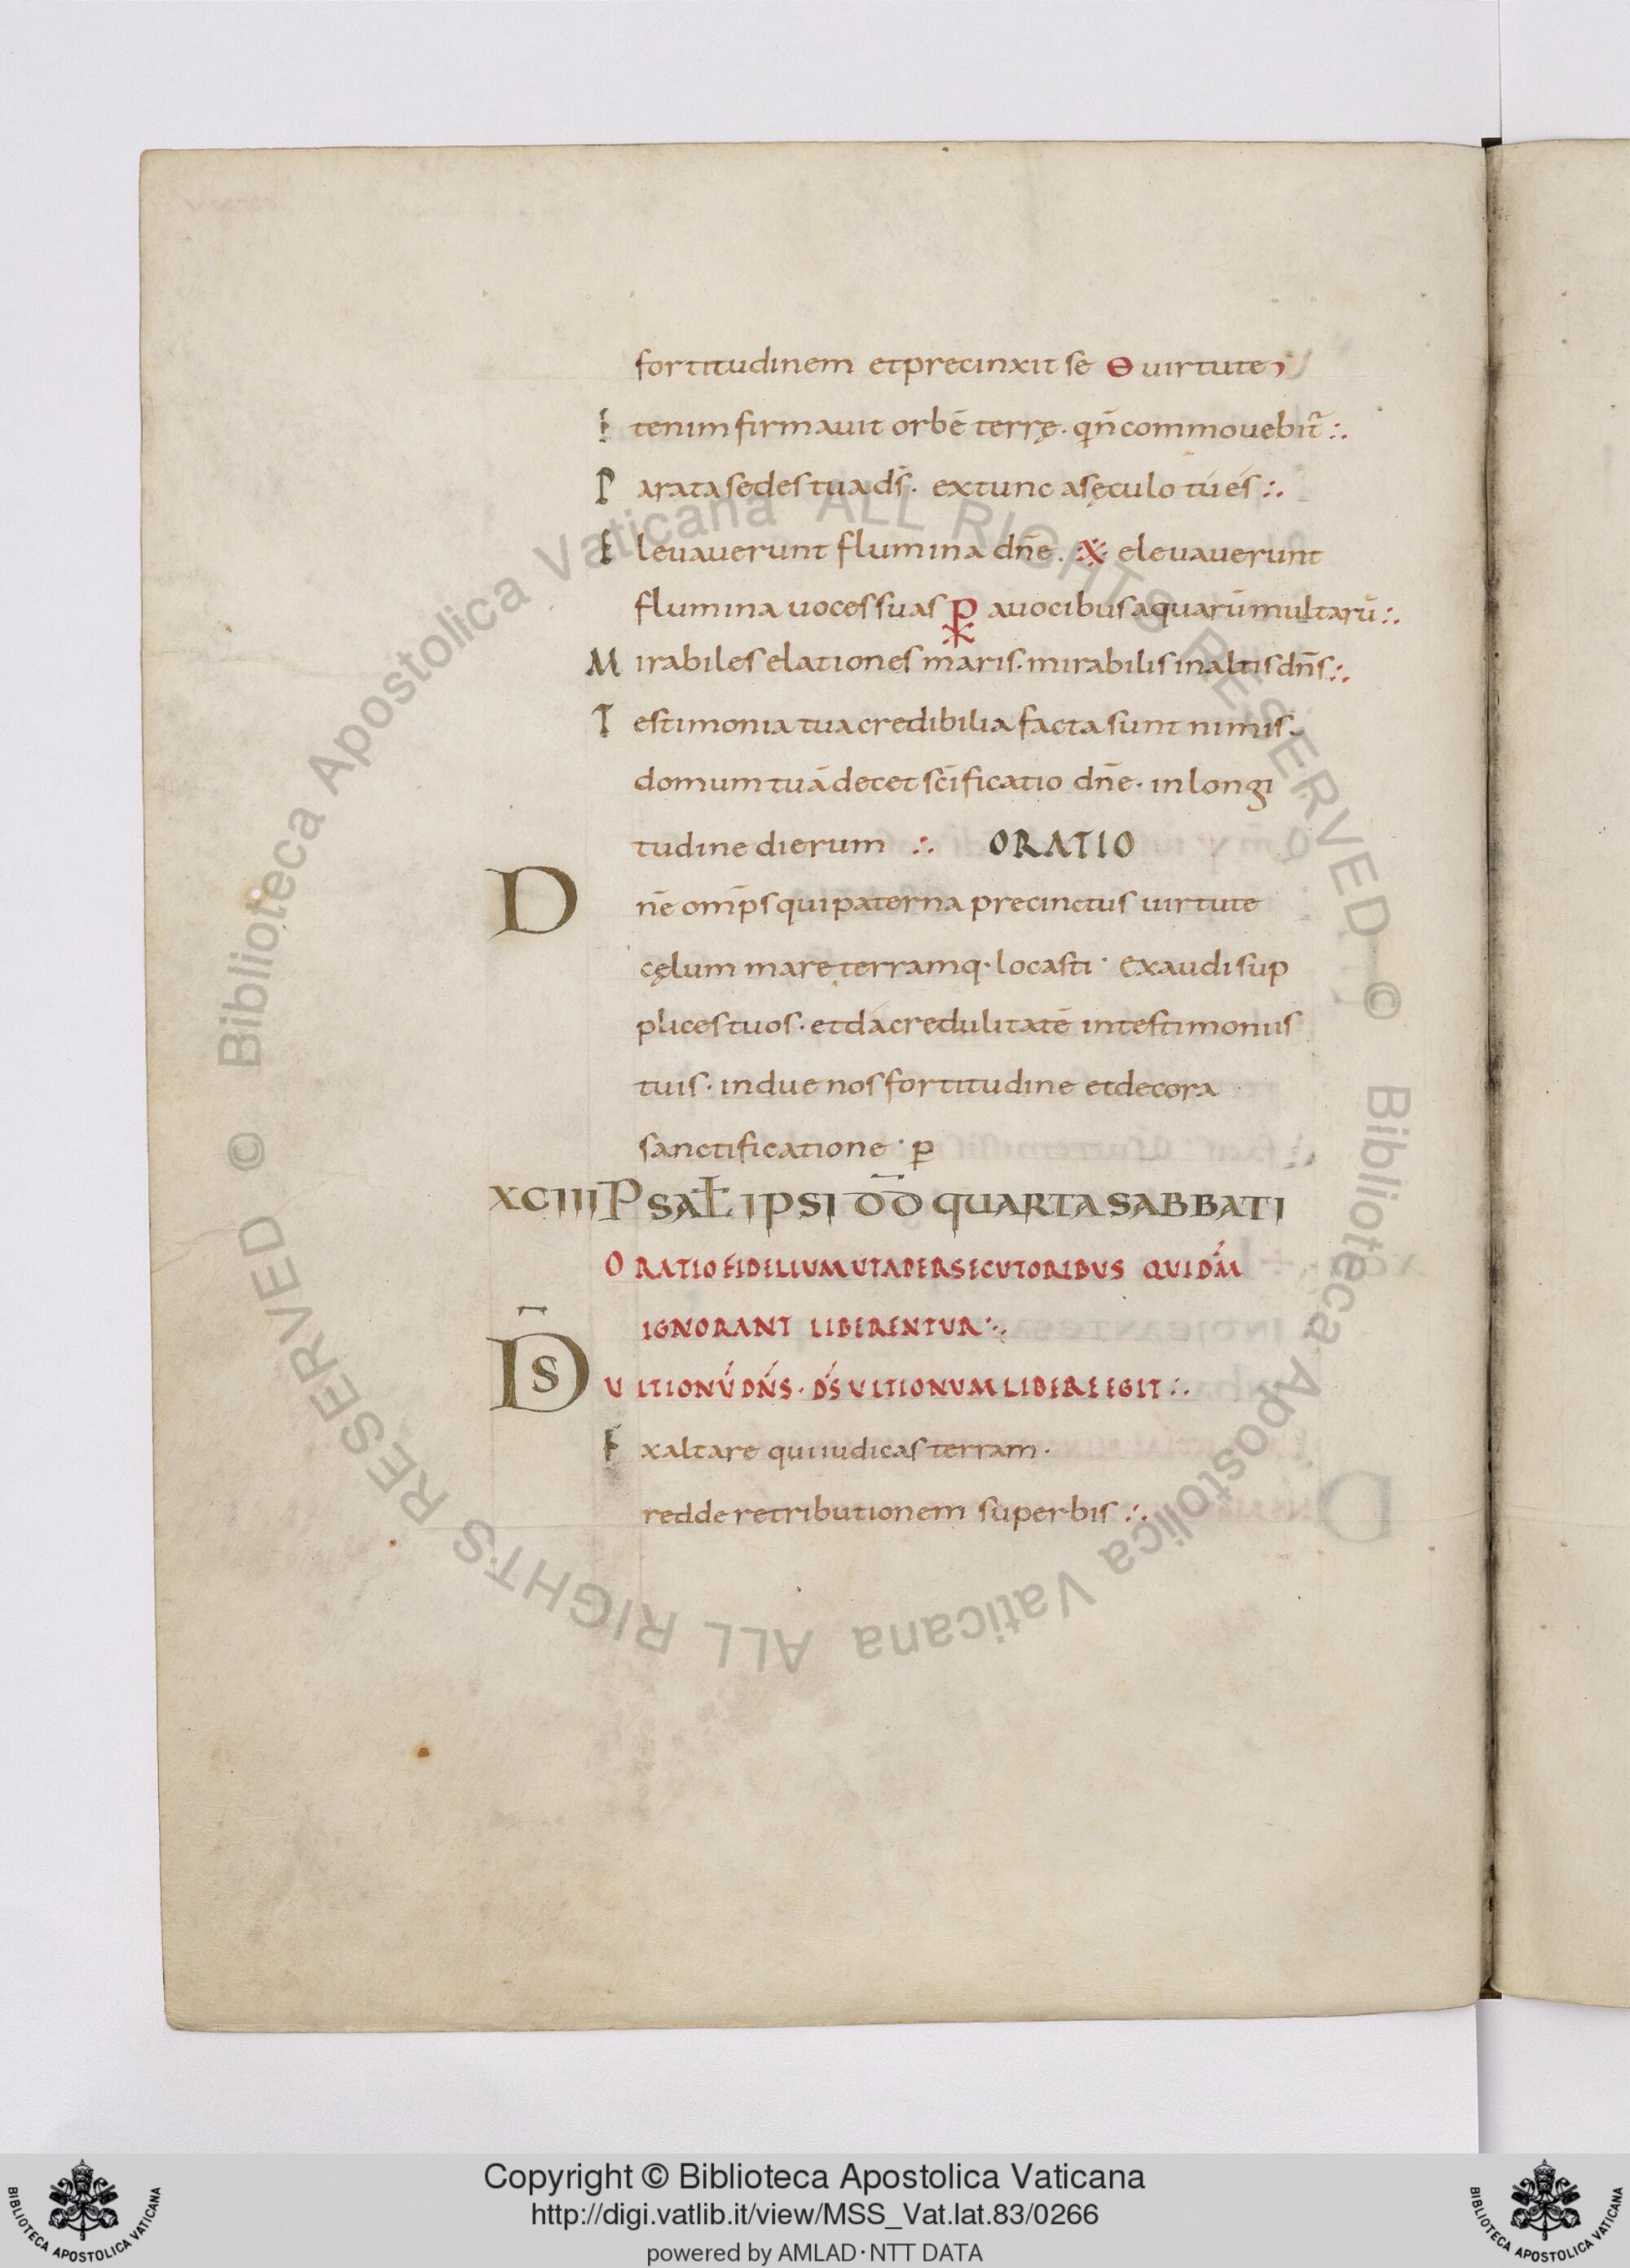 fortitudinem et precinxit se Θ uirtute
Etenim firmauit orbē terrę· qn̄ commouebit̄ :.
Parata sedes tua ds̄· ex tunc a sęculo tú és :.
Eleuauerunt flumina dn̄e · ※ eleuauerunt
flumina uoces suas ⳨ a uocibus aquarū multarū :.
Mirabiles elationes maris· mirabilis in altis dn̄s :.
Testimonia tua credibilia facta sunt nimis·
domum tuā decet scīficatio dn̄e· in longi
tudine dierum :. ORATIO
Dn̄e omp̄s qui paterna precinctus uirtute
cęlum mare terramq· locasti· Exaudi sup
plices tuos· et dá credulitatē in testimoniis
tuis· indue nos fortitudine et decora
sanctificatione· p̄
XCIII PSAŁ IPSI D̄D QUARTA SABBATI
ORATIO FIDELIUM UT A PERSECUTORIBUS QUI DM̄
IGNORANT LIBERENTUR :.
D̄S ULTIONŪ DN̄S· DS̄ ULTIONUM LIBERE EGIT :.
Exaltare qui iudicas terram·
redde retributionem superbis :.
© Biblioteca Apostolica Vaticana ALL RIGHTS RESERVED © Biblioteca Apostolica Vaticana ALL RIGHTS RESERVED
BIBLIOTECA APOSTOLICA VATICANA
Copyright © Biblioteca Apostolica Vaticana
http://digi.vatlib.it/view/MSS_Vat.lat.83/0266
powered by AMLAD·NTT DATA
BIBLIOTECA APOSTOLICA VATICANA